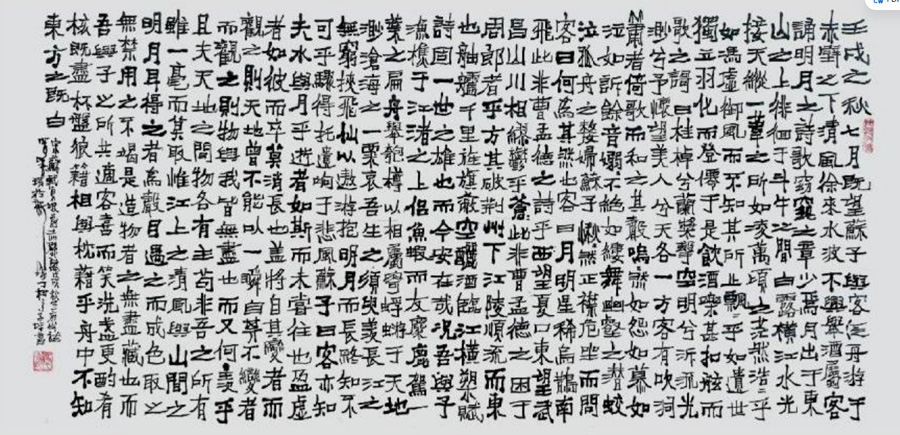 壬戌之秋七月既望蘇子與客泛舟游于
赤壁之下清風徐來水波不興舉酒屬客
誦明月之詩歌窈窕之章少焉月出于東
山之上徘徊于斗牛之間白露橫江水光
接天縱一葦之所如凌萬頃之茫然浩浩乎
如馮虛御風而不知其所止飄飄乎如遺世
獨立羽化而登僊于是飲酒樂甚扣舷而
歌之歌曰桂棹兮蘭槳擊空明兮泝流光
渺兮予懷望美人兮天各一方客有吹洞
簫者倚歌而和之其聲嗚嗚然如怨如慕如
泣如訴餘音嫋嫋不絕如縷舞幽壑之潛蛟
泣孤舟之嫠婦蘇子愀然正襟危坐而問
客曰何為其然也客曰月明星稀烏鵲南
飛此非曹孟德之詩乎西望夏口東望武
昌山川相繆鬱乎蒼蒼此非曹孟德之困于
周郎者乎方其破荊州下江陵順流而東
也舳艫千里旌旗蔽空釃酒臨江橫槊賦
詩固一世之雄也而今安在哉況吾與子
漁樵于江渚之上侶魚蝦而友麋鹿駕一
葉之扁舟舉匏樽以相屬寄蜉蝣于天地
渺滄海之一粟哀吾生之須臾羨長江之
無窮挾飛仙以遨游抱明月而長終知不
可乎驟得托遺响于悲風蘇子曰客亦知
夫水與月乎逝者如斯而未嘗往也盈虛
者如彼而卒莫消長也蓋將自其變者而
觀之則天地曾不能以一瞬自其不變者
而觀之則物與我皆無盡也而又何羨乎
且夫天地之間物各有主苟非吾之所有
雖一毫而莫取惟江上之清風與山間之
明月耳得之者為聲目遇之而成色取之
無禁用之不竭是造物者之無盡藏也而
吾與子之所共適客喜而笑洗盞更酌肴
核既盡杯盤狼藉相與枕藉乎舟中不知
東方之既白